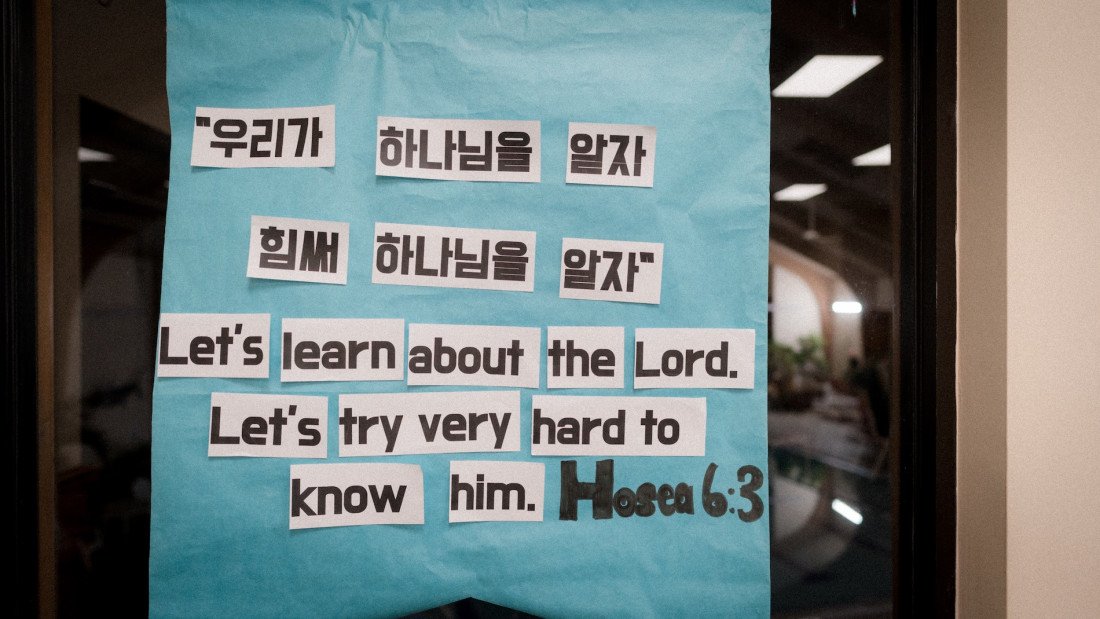 "우리가 하나님을 알자
힘써 하나님을 알자"
Let's learn about the Lord.
Let's try very hard to
know him. Hosea 6:3